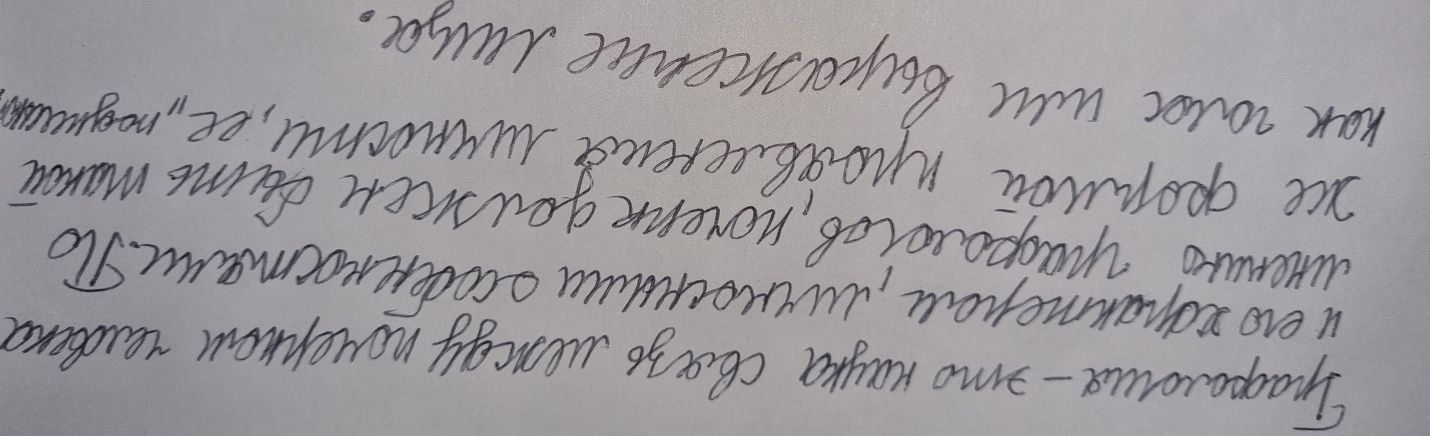 Графология – это наука связь между почерком человека
и его характером, личностными особенностями. По
мнению графологов, почерк должен быть такой
же формой проявления личности, ее "подлинно
как голос или выражение лица.